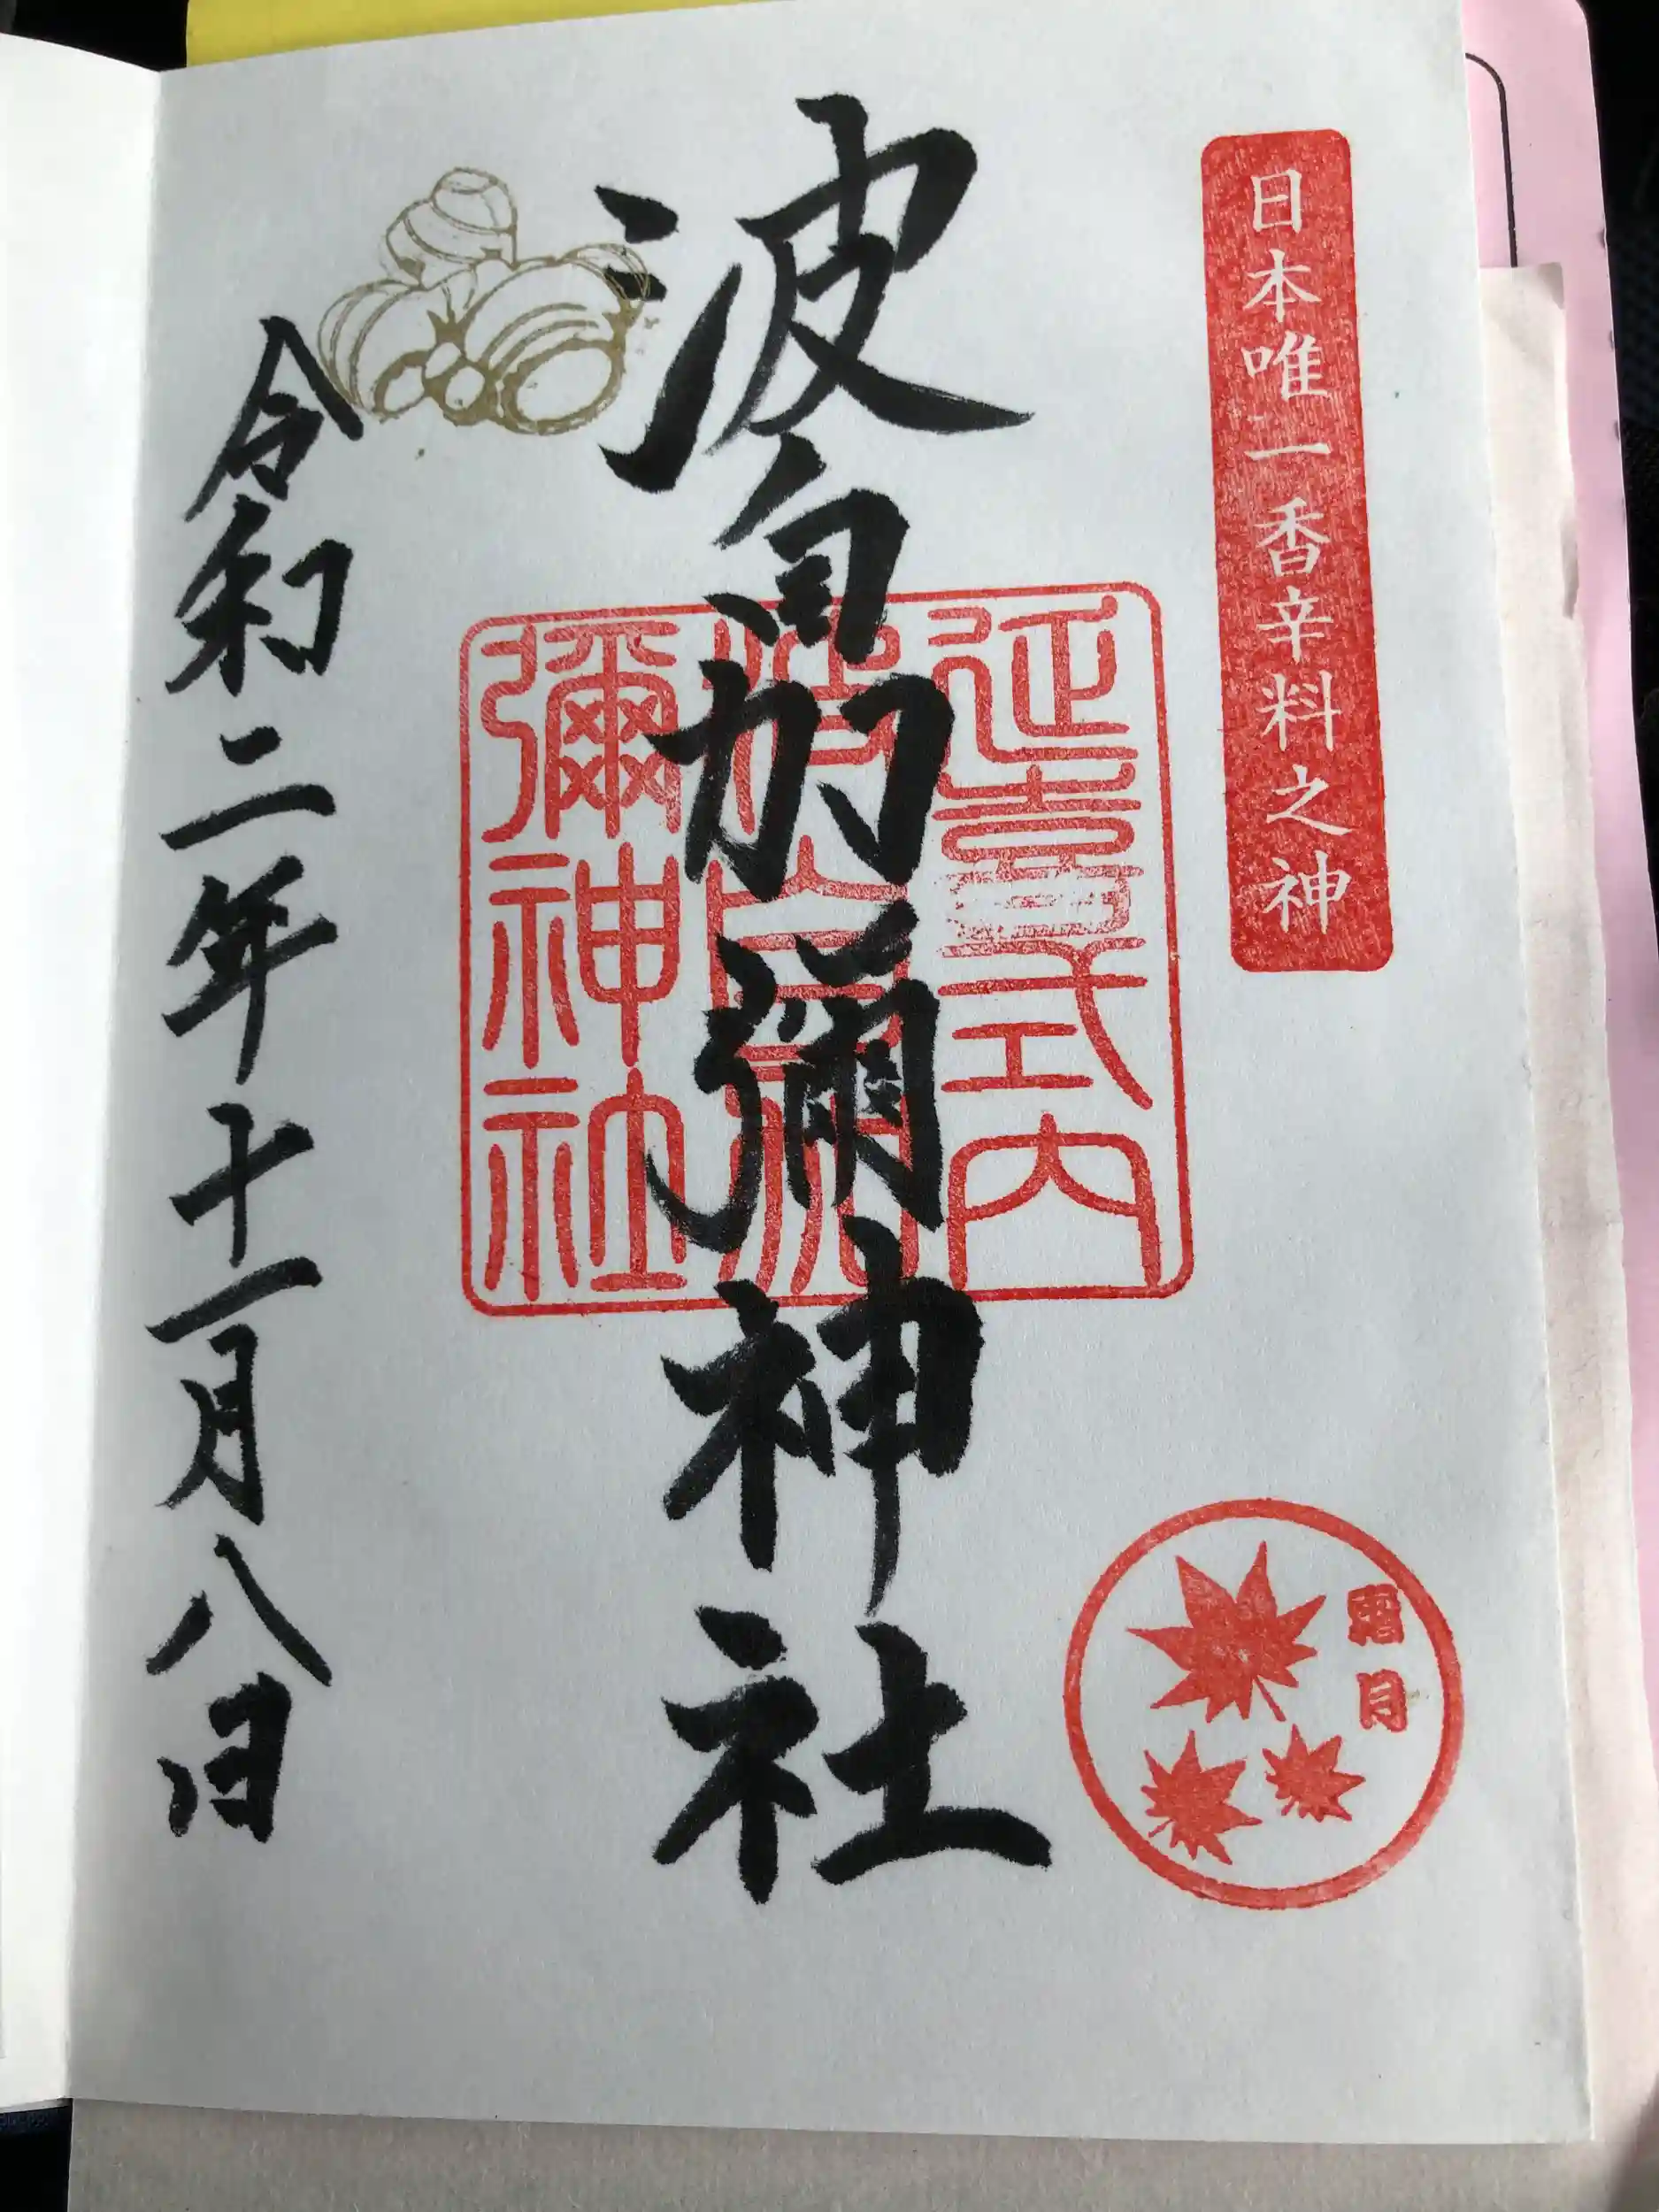 日本唯一香辛料之神
霜月
波自加彌神社
延喜式内
波自加
彌神社
令和二年十一月八日